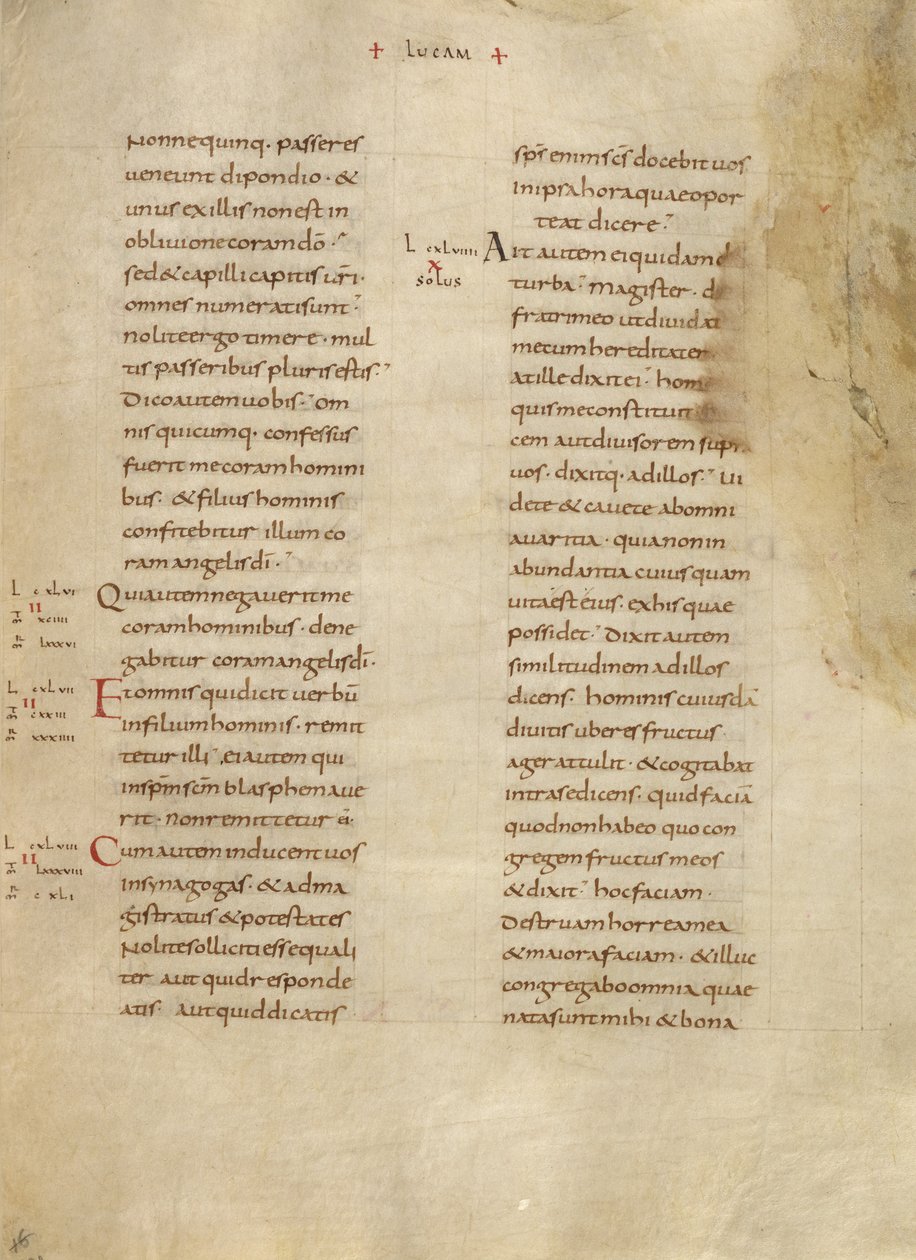 + LUCAM +
Nonne quinq· passeres
ueneunt dipondio · &
unus ex illis non est in
obliuione coram dō ·
sed & capilli capitis uri·
omnes numerati sunt·
nolite ergo timere · mul
tis passeribus pluris estis·
Dico autem uobis· om
nis quicumq· confessus
fuerit me coram homini
bus· & filius hominis
confitebitur illum co
ram angelis dī·
L cxLvi
II
mt xciiii
mr Lxxxvi
Qui autem negauerit me
coram hominibus · dene
gabitur coram angelis dī·
L cxLvii
II
mt cxxiii
mr xxxiiii
Et omnis qui dicit uerbū
in filium hominis · remit
tetur illi· ei autem qui
in spm scm blasphemaue
rit · non remittetur ei·
L cxLviii
II
mt Lxxxviii
mr cxLi
Cum autem inducent uos
in synagogas · & ad ma
gistratus & potestates
Nolite solliciti esse quali
ter aut quid responde
atis· aut quid dicatis
sps enim scs docebit uos
in ipsa hora quae opor
teat dicere·
L cxLviiii
X
solus
Ait autem ei quidam de
turba· magister · d
fratri meo ut diuidat
mecum hereditatem
at ille dixit ei· hom
quis me constituit
cem aut diuisorem supr
uos · dixitq· ad illos· Ui
dete & cauete ab omni
auaritia · quia non in
abundantia cuiusquam
uita est eius · ex his quae
possidet· Dixit autem
similitudinem ad illos
dicens· hominis cuiusdā
diuitis uberes fructus
ager attulit · & cogitabat
intra se dicens· quid faciā
quod non habeo quo con
gregem fructus meos
& dixit· hoc faciam ·
Destruam horrea mea
& maiora faciam · & illuc
congregabo omnia quae
nata sunt mihi & bona